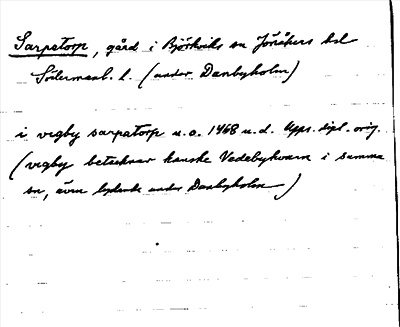 Sarpetorp, gård i Björkviks sn Jönåkers hd
Södermanl. l. (under Danbyholm)
i vegby sarpatorp u.o. 1468 u.d. Upps. dipl. orig.
(vegby betecknar kanske Vedebykvarn i samma
sn, även lydande under Danbyholm)